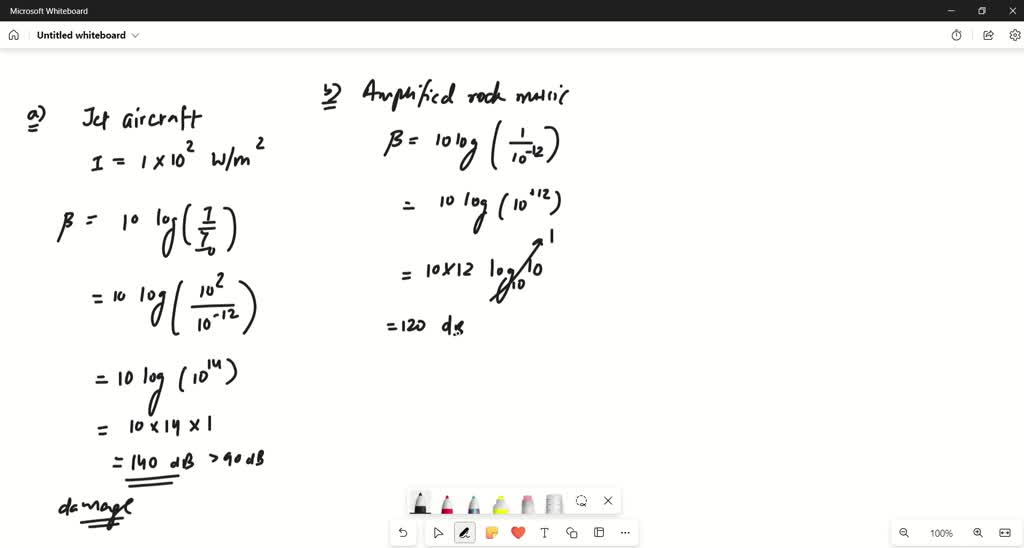 Microsoft Whiteboard
Untitled whiteboard
a) Jet aircraft
I = 1 × 10² W/m²
β = 10 log(I/I₀)
= 10 log(10²/10⁻¹²)
= 10 log(10¹⁴)
= 10 × 14 × 1
= 140 dB > 90 dB
damage
b) Amplified rock music
β = 10 log(1/10⁻¹²)
= 10 log(10⁺¹²)
= 10×12 log₁₀10 1
= 120 dB
T
100%